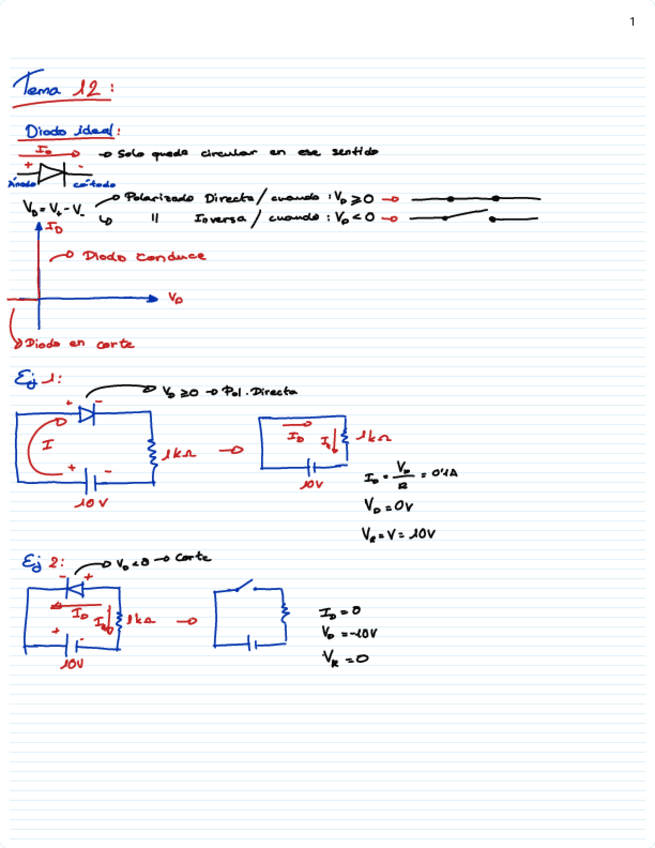 1
Tema 12:
Diodo ideal:
I_D → Solo puede circular en ese sentido
+ -
ánodo cátodo
V_D = V+ - V-
→ Polarizado Directa / cuando : V_D ≥ 0 →
↳ " Inversa / cuando : V_D < 0 →
I_D
→ Diodo conduce
V_D
→ Diodo en corte
Ej 1:
V_D ≥ 0 → Pol. Directa
+ -
I
+ -
10 V
1kΩ →
I_D
1kΩ
10V
I_D = V_D/R = 0'1A
V_D = 0V
V_R = V = 10V
Ej 2:
V_D < 0 → Corte
- +
I_D
1kΩ →
+ -
10V
I_D = 0
V_D = -10V
V_R = 0